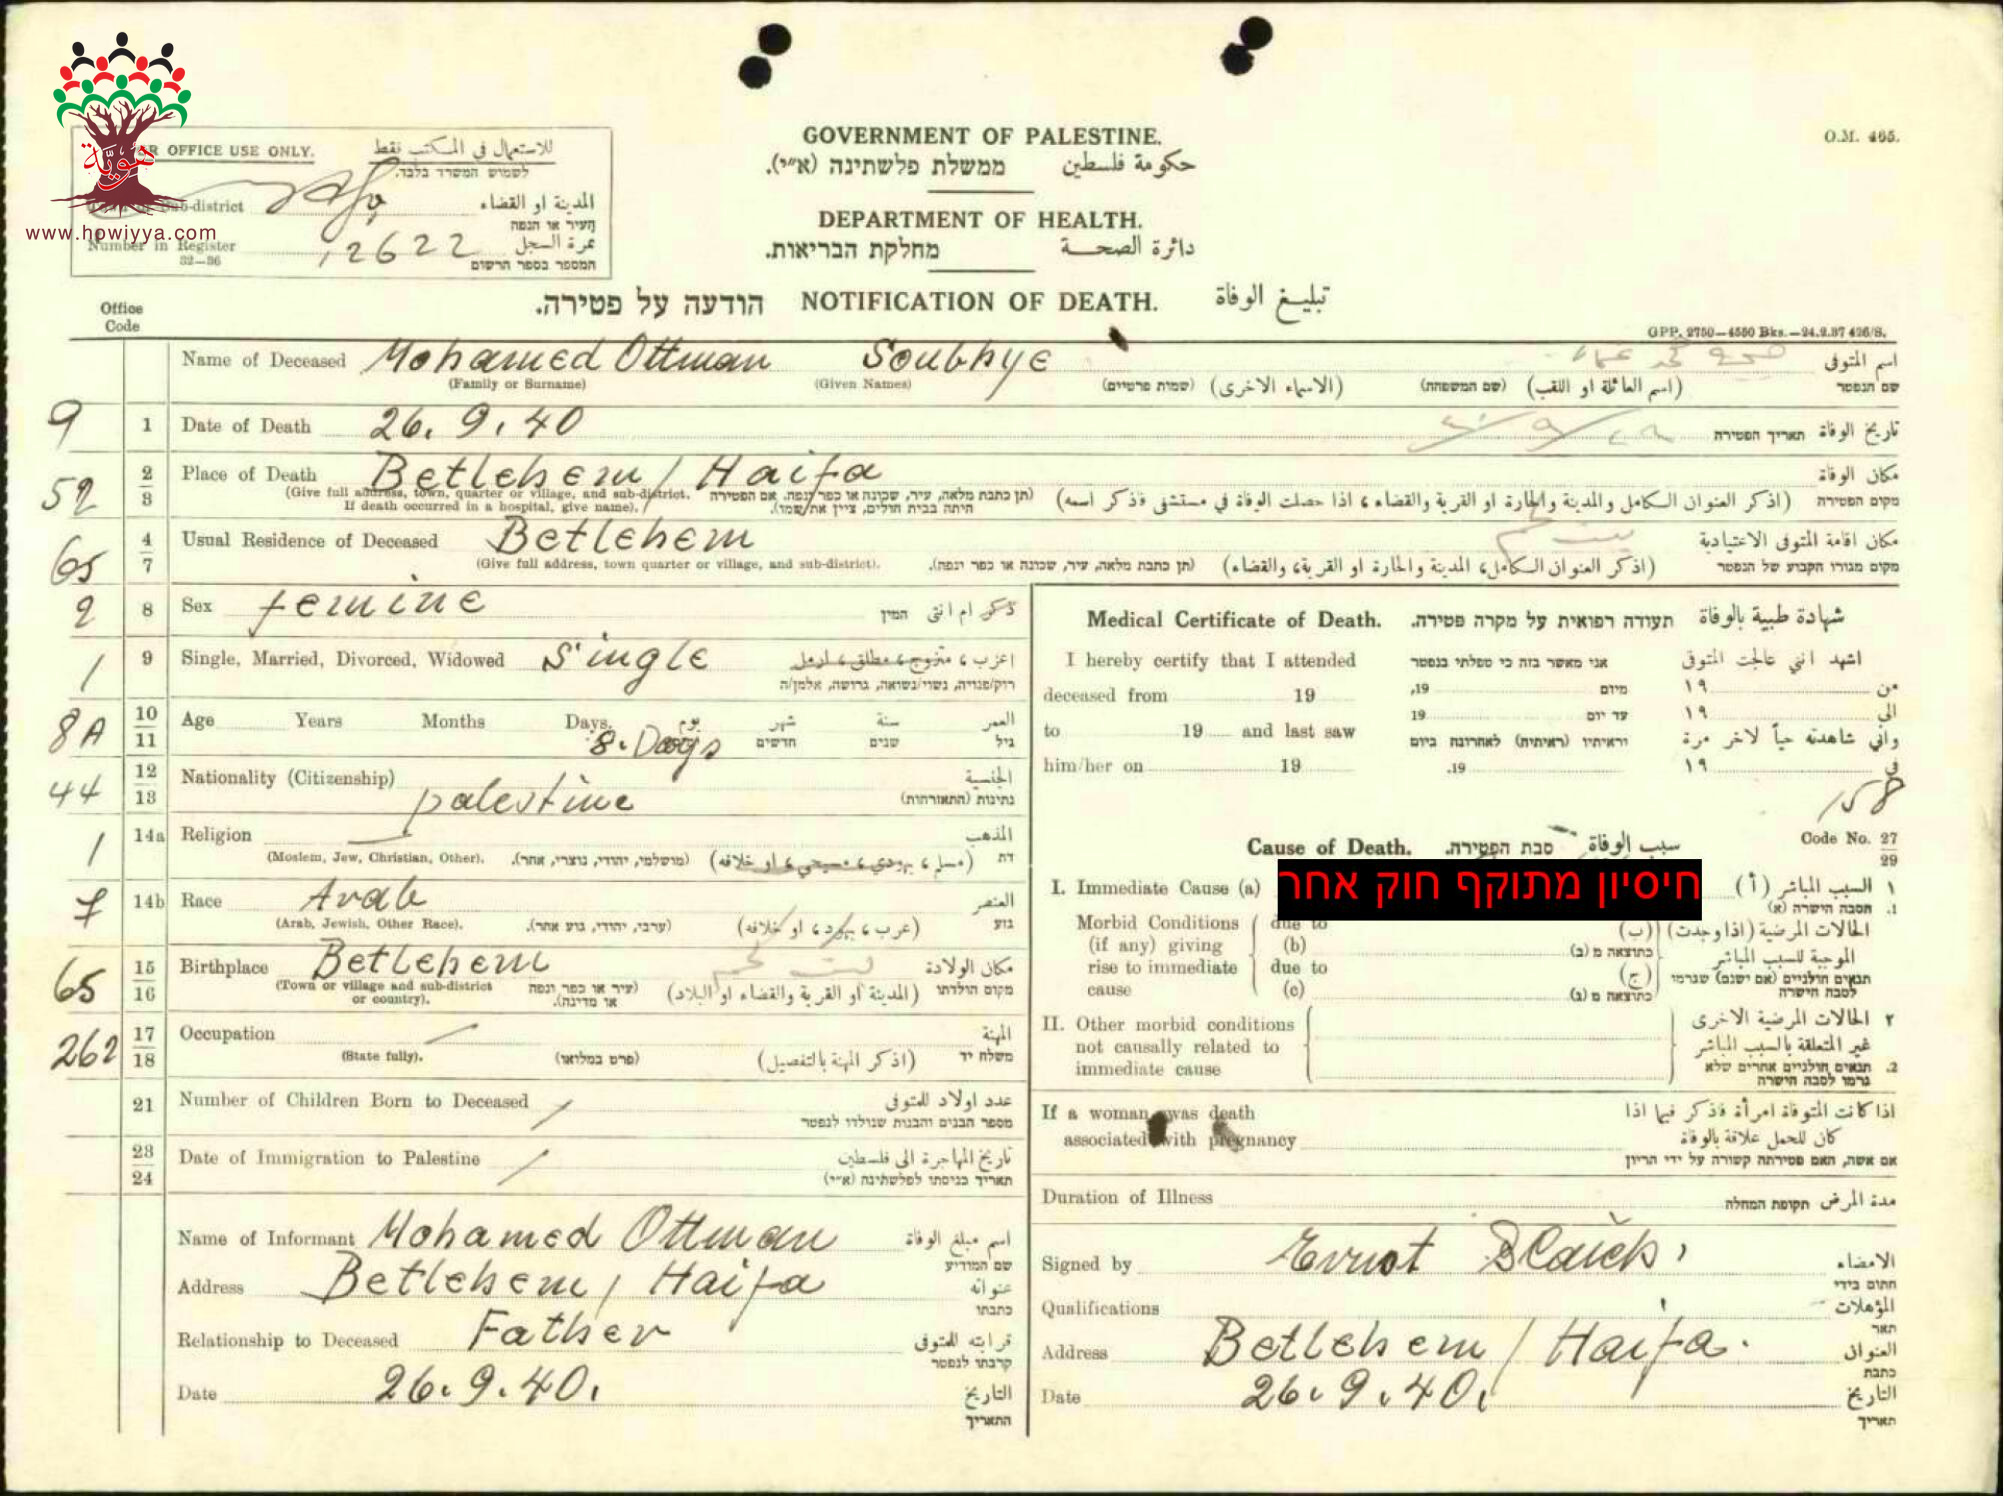 هوية
www.howiyya.com
OR OFFICE USE ONLY. للاستعمال في المكتب نقط
לשמוש המשרד בלבד.
Sub-district المدينة او القضاء
העיר או הנפה
Number in Register 2622 نمرة السجل
32—36 המספר בספר הרשום
GOVERNMENT OF PALESTINE.
ממשלת פלשתינה (א״י). حكومة فلسطين
DEPARTMENT OF HEALTH.
מחלקת הבריאות. دائرة الصحة
O.M. 465.
הודעה על פטירה. NOTIFICATION OF DEATH. تبليغ الوفاة
GPP. 2750—4550 Bks.—24.2.37 426/S.
Office
Code
Name of Deceased Mohamed Ottman Soubhye اسم المتوفى
(Family or Surname) (Given Names) (שמות פרטיים) (الاسماء الاخرى) (שם המשפחה) (اسم العائلة او اللقب) שם הנפטר
9 1 Date of Death 26. 9. 40 תאריך הפטירה تاريخ الوفاة
52 2/3 Place of Death Betlehem / Haifa مكان الوفاة
(Give full address, town, quarter or village, and sub-district. (תן כתבת מלאה, עיר, שכונה או כפר ונפה. אם הפטירה (اذكر العنوان الكامل والمدينة والحارة او القرية والقضاء ، اذا حصلت الوفاة في مستشفى فذكر اسمه) מקום הפטירה
If death occurred in a hospital, give name). היתה בבית חולים, ציין את שמו).
65 4/7 Usual Residence of Deceased Betlehem بيت لحم مكان اقامة المتوفى الاعتيادية
(Give full address, town quarter or village, and sub-district). (תן כתבת מלאה, עיר, שכונה או כפר ונפה). (اذكر العنوان الكامل، المدينة والحارة او القرية، والقضاء) מקום מגורו הקבוע של הנפטר
2 8 Sex femine המין ذكر ام انثى
1 9 Single, Married, Divorced, Widowed Single اعزب ، متزوج ، مطلق ، ارمل
רוק/פנויה, נשוי/נשואה, גרושה, אלמן/ה
8A 10/11 Age Years Months Days 8. Days يوم شهر سنة العمر
חדשים שנים גיל
44 12/13 Nationality (Citizenship) palestine الجنسية
נתינות (התאזרחות)
1 14a Religion المذهب
(Moslem, Jew, Christian, Other). (מושלמי, יהודי, נוצרי, אחר). (مسلم ، يهودي ، مسيحي ، او خلافه) דת
7 14b Race Arab العنصر
(Arab, Jewish, Other Race). (ערבי, יהודי, גזע אחר). (عرب ، يهود ، او خلافه) גזע
65 15/16 Birthplace Betlehem بيت لحم مكان الولادة
(Town or village and sub-district or country). (עיר או כפר ונפה או מדינה). (المدينة او القرية والقضاء او البلاد) מקום הולדתו
262 17/18 Occupation المهنة
(State fully). (פרט במלואו) (اذكر المهنة بالتفصيل) משלח יד
21 Number of Children Born to Deceased عدد اولاد للمتوفى
מספר הבנים והבנות שנולדו לנפטר
23/24 Date of Immigration to Palestine تاريخ المهاجرة الى فلسطين
תאריך כניסתו לפלשתינה (א״י)
Name of Informant Mohamed Ottman اسم مبلغ الوفاة
שם המודיע
Address Betlehem / Haifa عنوانه
כתבתו
Relationship to Deceased Father قرابته للمتوفى
קרבתו לנפטר
Date 26. 9. 40. التاريخ
התאריך
Medical Certificate of Death. תעודה רפואית על מקרה פטירה. شهادة طبية بالوفاة
I hereby certify that I attended אני מאשר בזה כי טפלתי בנפטר اشهد انني عالجت المتوفى
deceased from 19 מיום 19, من ١٩
to 19 and last saw עד יום 19 الى ١٩
וראיתיו (ראיתיה) לאחרונה ביום واني شاهدته حياً لاخر مرة
him/her on 19 19. في ١٩
158
Cause of Death. סבת הפטירה. سبب الوفاة Code No. 27/29
I. Immediate Cause (a) חיסיון מתוקף חוק אחר (أ) السبب المباشر ١
הסבה הישרה (א) 1.
Morbid Conditions due to الحالات المرضية (اذا وجدت) (ب)
(if any) giving (b) כתוצאה מ (ב) الموجبة للسبب المباشر
rise to immediate due to (ج) תנאים חולניים (אם ישנם) שגרמו
cause (c) כתוצאה מ (ג) לסבה הישרה
II. Other morbid conditions الحالات المرضية الاخرى ٢
not causally related to غير المتعلقة بالسبب المباشر
immediate cause תנאים חולניים אחרים שלא 2.
גרמו לסבה הישרה
If a woman, was death اذا كانت المتوفاة امرأة فذكر فيما اذا
associated with pregnancy كان للحمل علاقة بالوفاة
אם אשה, האם פטירתה קשורה על ידי הריון
Duration of Illness תקופת המחלה مدة المرض
Signed by Ernst الامضاء
חתום בידי
Qualifications المؤهلات
תאר
Address Betlehem / Haifa. العنوان
כתבת
Date 26. 9. 40. التاريخ
תאריך